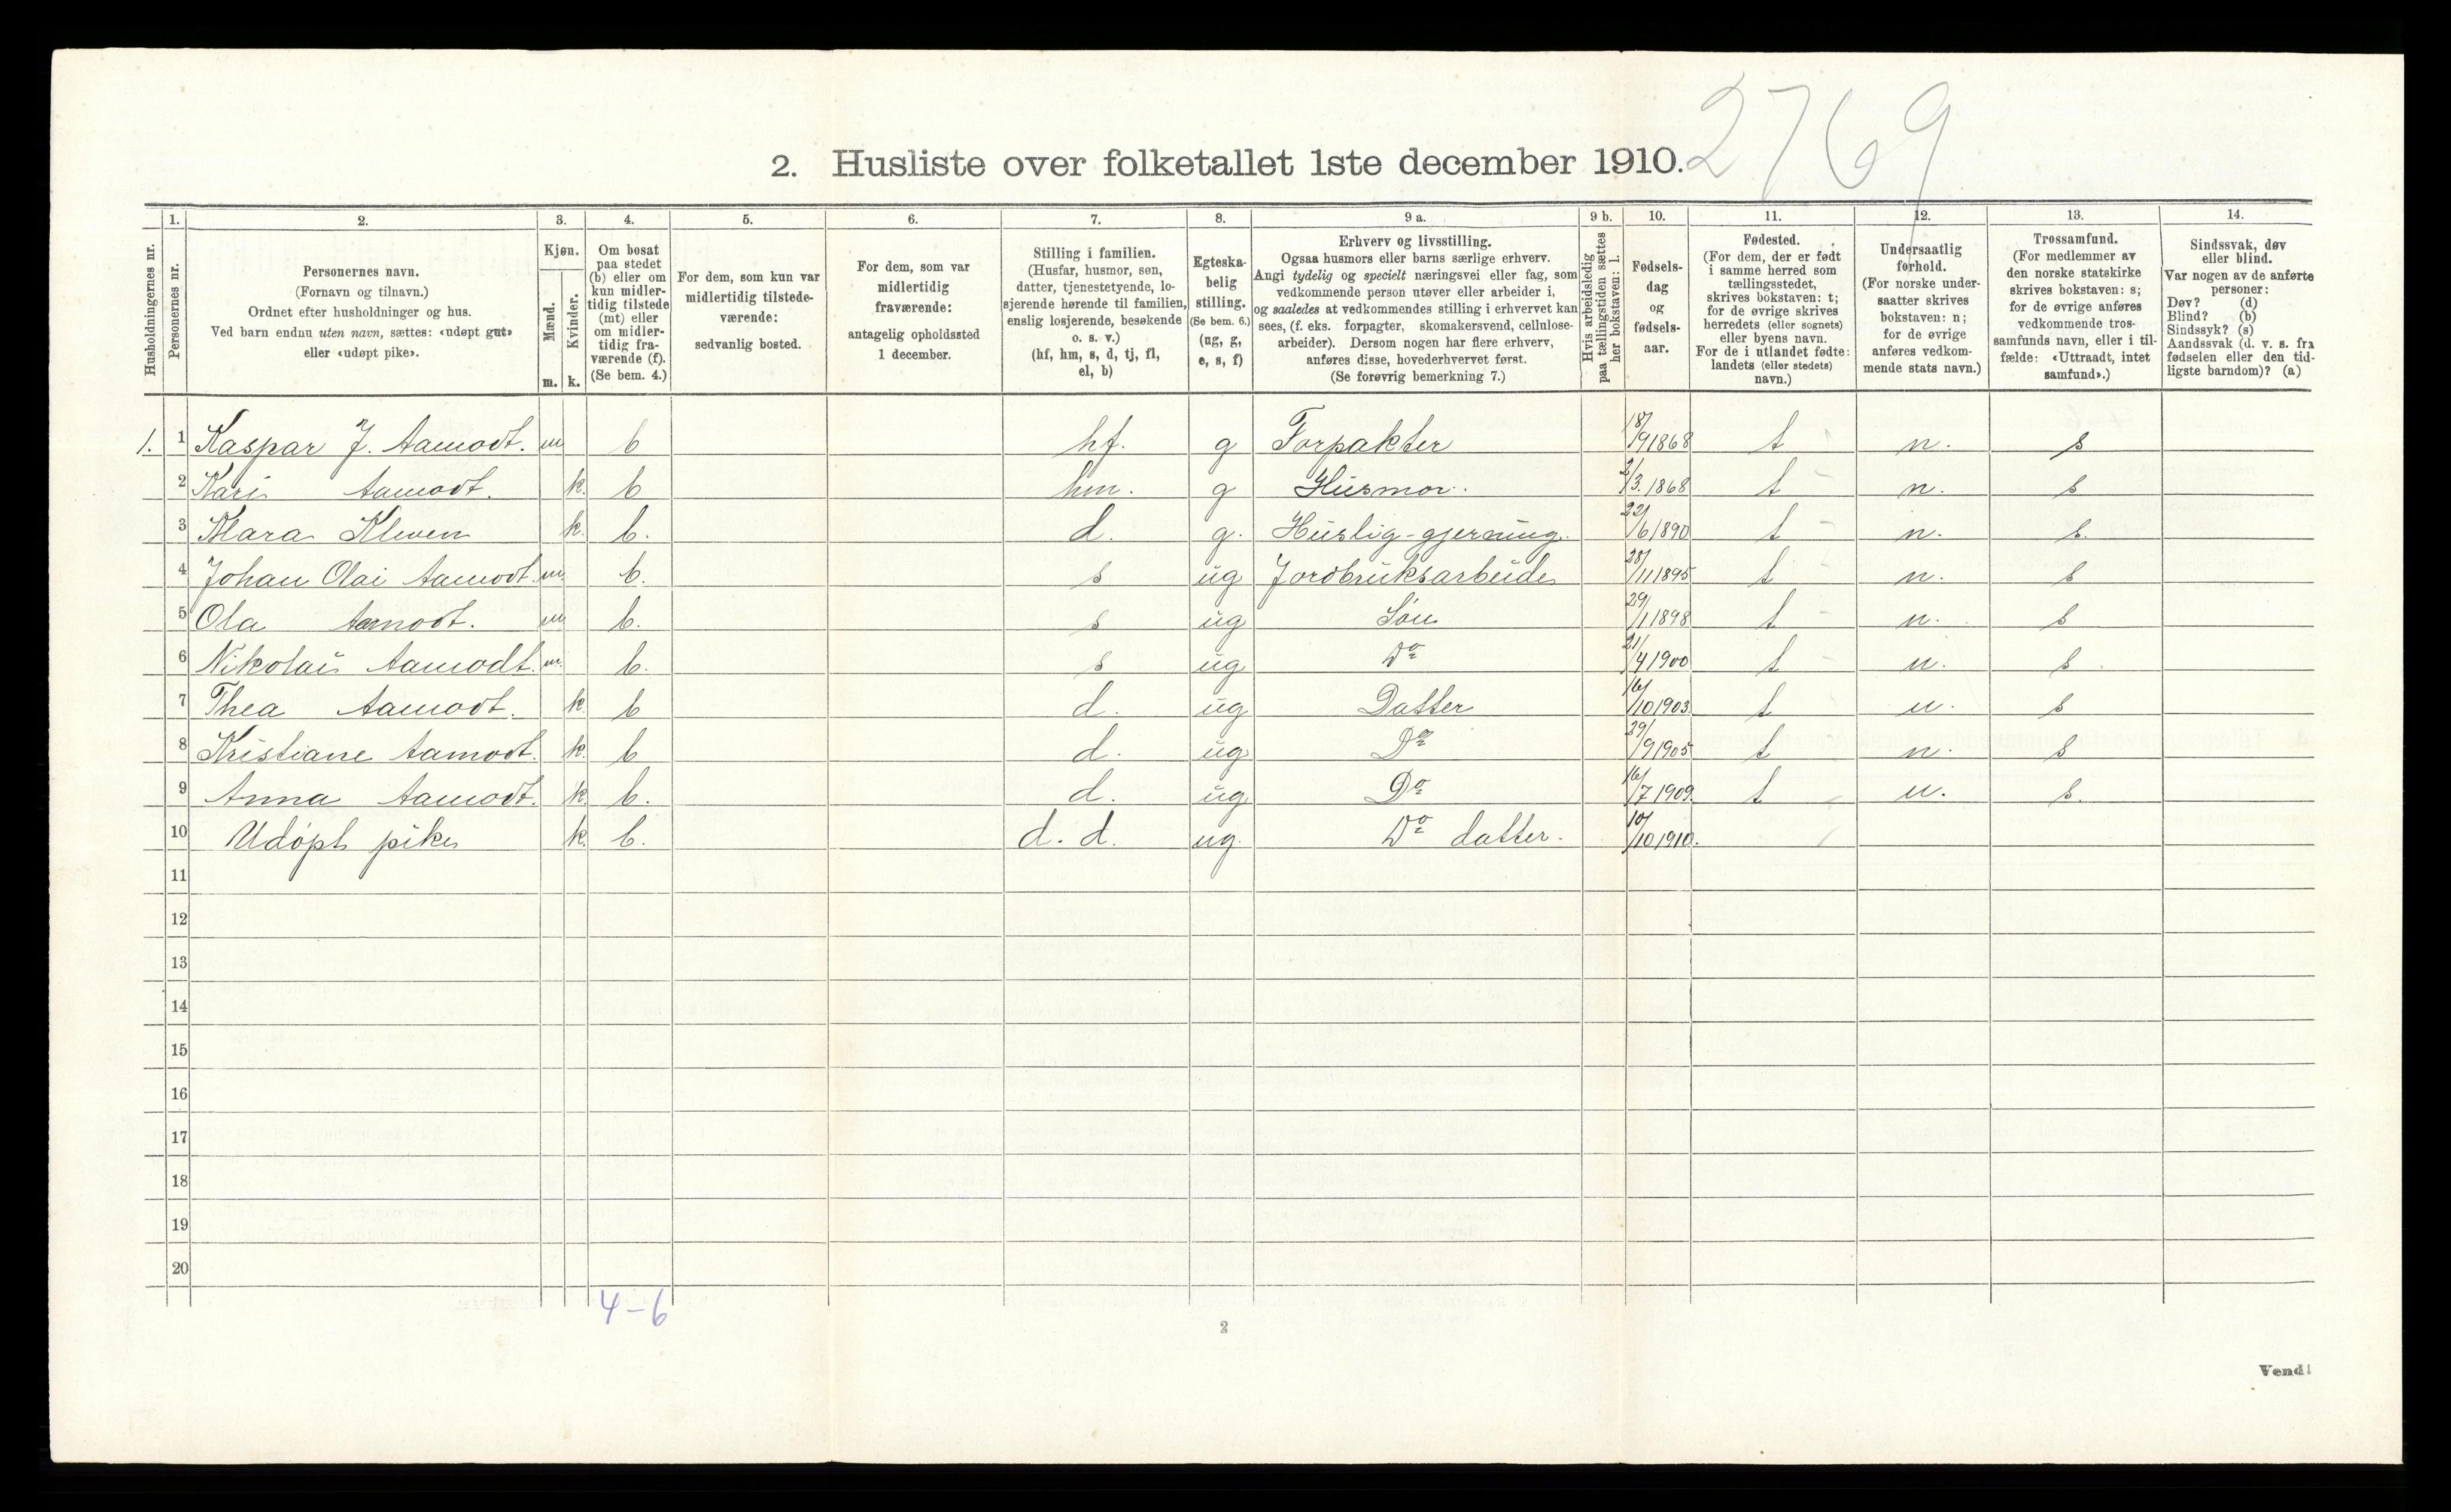 2769
2. Husliste over folketallet 1ste december 1910.
1. 2. 3. 4. 5. 6. 7. 8. 9 a. 9 b. 10. 11. 12. 13. 14.
Husholdningernes nr.
Personernes nr.
Personernes navn.
(Fornavn og tilnavn.)
Ordnet efter husholdninger og hus.
Ved barn endnu uten navn, sættes: «udøpt gut»
eller «udøpt pike».
Kjøn.
Mænd.
Kvinder.
m. k.
Om bosat
paa stedet
(b) eller om
kun midler-
tidig tilstede
(mt) eller
om midler-
tidig fra-
værende (f).
(Se bem. 4.)
For dem, som kun var
midlertidig tilstede-
værende:
sedvanlig bosted.
For dem, som var
midlertidig
fraværende:
antagelig opholdssted
1 december.
Stilling i familien.
(Husfar, husmor, søn,
datter, tjenestetyende, lo-
sjerende hørende til familien,
enslig losjerende, besøkende
o. s. v.)
(hf, hm, s, d, tj, fl,
el, b)
Egteska-
belig
stilling.
(Se bem. 6.)
(ug, g,
e, s, f)
Erhverv og livsstilling.
Ogsaa husmors eller barns særlige erhverv.
Angi tydelig og specielt næringsvei eller fag, som
vedkommende person utøver eller arbeider i,
og saaledes at vedkommendes stilling i erhvervet kan
sees, (f. eks. forpagter, skomakersvend, cellulose-
arbeider). Dersom nogen har flere erhverv,
anføres disse, hovederhvervet først.
(Se forøvrig bemerkning 7.)
Hvis arbeidsledig
paa tællingstiden sættes
her bokstaven: l.
Fødsels-
dag
og
fødsels-
aar.
Fødested.
(For dem, der er født
i samme herred som
tællingsstedet,
skrives bokstaven: t;
for de øvrige skrives
herredets (eller sognets)
eller byens navn.
For de i utlandet fødte:
landets (eller stedets)
navn.)
Undersaatlig
forhold.
(For norske under-
saatter skrives
bokstaven: n;
for de øvrige
anføres vedkom-
mende stats navn.)
Trossamfund.
(For medlemmer av
den norske statskirke
skrives bokstaven: s;
for de øvrige anføres
vedkommende tros-
samfunds navn, eller i til-
fælde: «Uttraadt, intet
samfund».)
Sindssvak, døv
eller blind.
Var nogen av de anførte
personer:
Døv? (d)
Blind? (b)
Sindssyk? (s)
Aandssvak (d. v. s. fra
fødselen eller den tid-
ligste barndom)? (a)
1. 1 Kaspar J. Aamodt. m b hf. g Forpakter 18/9 1868 t n. s
2 Kari Aamodt. k. b hm. g Husmor. 2/3. 1868 t n. s
3 Klara Kleven k. b. d. g. Huslig-gjerning. 22/6 1890 t n. s.
4 Johan Olai Aamodt. m. b. s ug Jordbruksarbeide 28/11 1895 t n. s
5 Ola Aamodt. m b. s ug Søn 29/1 1898 t n. s
6 Nikolai Aamodt. m. b. s ug Do 21/4 1900 t n. s
7 Thea Aamodt. k. b d. ug Datter 16/10 1903. t n. s
8 Kristiane Aamodt. k. b d. ug Do 29/9 1905 t n. s
9 Anna Aamodt. k. b. d. ug Do 16/7 1909. t n. s.
10 Udøpt pike k. b. d. d. ug. Do datter. 10/10 1910.
11
12
13
14
15
16
17
18
19
20
4-6
2
Vend!